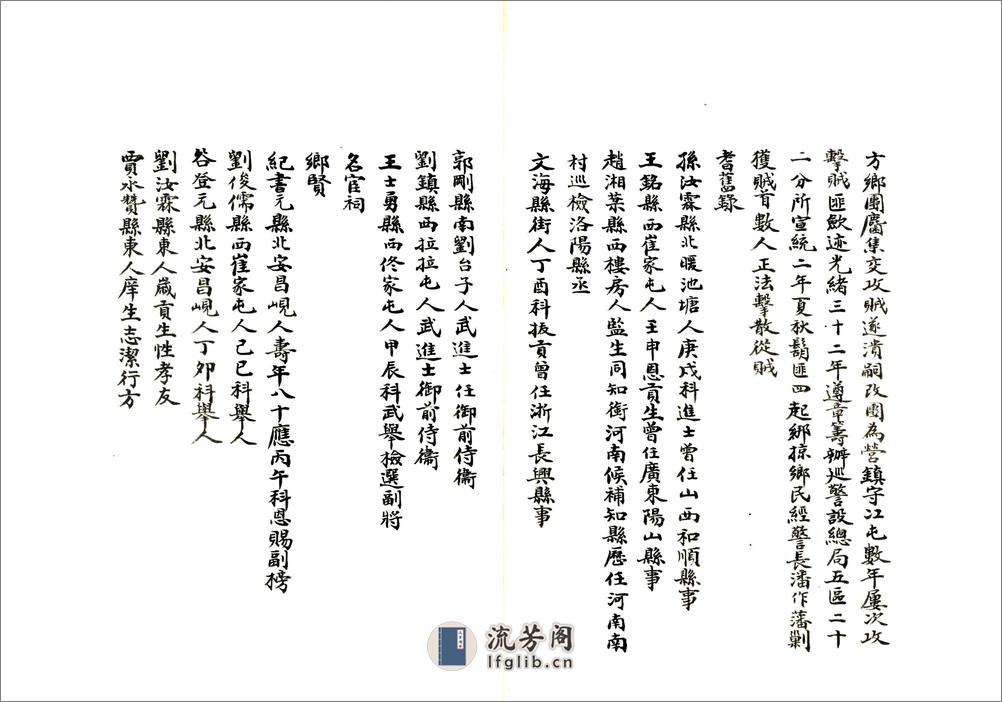 方鄉團麕集交攻賊遂潰嗣改團為營鎮守江屯數年屢次攻
擊賊匪歛迹光緒三十二年遵章籌辦巡警設總局五區二十
二分所宣統二年夏秋鬍匪四起綁掠鄉民經警長潘作藩剿
獲賊首數人正法擊散從賊
耆舊錄
孫汝霖縣北暖池塘人庚戌科進士曾任山西和順縣事
王銘縣西崔家屯人壬申恩貢生曾任廣東陽山縣事
趙湘葉縣西樓房人監生同知銜河南候補知縣歷任河南南
村巡檢洛陽縣丞
文海縣街人丁酉科拔貢曾任浙江長興縣事
郭剛縣南劉台子人武進士任御前侍衞
劉鎮縣西拉拉屯人武進士御前侍衞
王士勇縣西佟家屯人甲辰科武舉檢選副將
名宦祠
鄉賢
紀書元縣北安昌峴人壽年八十應丙午科恩賜副榜
劉俊儒縣西崔家屯人己巳科舉人
答登元縣北安昌峴人丁卯科舉人
劉汝霖縣東人歲貢生性孝友
賈永贊縣東人庠生志潔行方
流芳阁
lfglib.cn